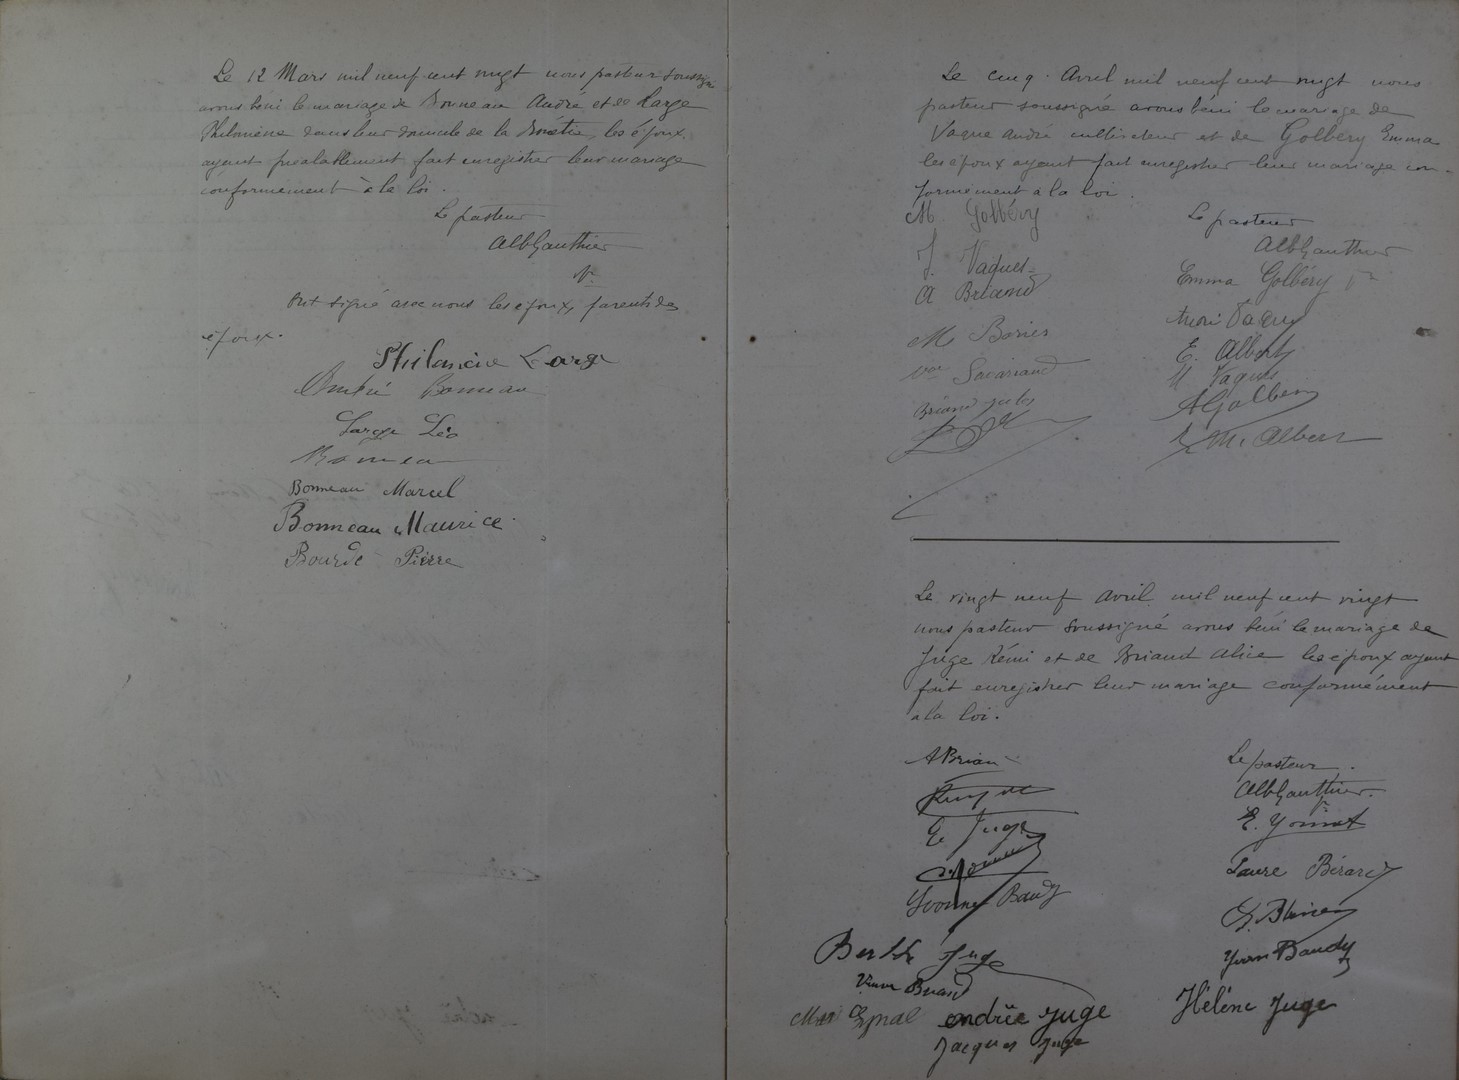 Le 12 Mars mil neuf cent vingt nous pasteur soussigné
avons béni le mariage de Bonneau André et de Large
Philomène dans leur domicile de la les époux
ayant préalablement fait enregistrer leur mariage
conformément à la loi.
Le pasteur
Alb Gauthier
Ont signé avec nous les époux, parents des
époux.
Philomène Large
André Bonneau
Large Léo
Bonneau
Bonneau Marcel
Bonneau Maurice
Bourde Pierre
Le cinq Avril mil neuf cent vingt nous
pasteur soussigné avons béni le mariage de
Vaque André cultivateur et de Golbéry Emma
les époux ayant fait enregistrer leur mariage con-
formément à la loi.
M Golbéry
J. Vaques
A Briand
M Bories
Briand Jules
Le pasteur
Alb Gauthier
Emma Golbéry
Vaque
E. Albert
M Vaques
A Golbery
M. Albert
Le vingt neuf Avril mil neuf cent vingt
nous pasteur soussigné avons béni le mariage de
Juge Rémi et de Briand Alice les époux ayant
fait enregistrer leur mariage conformément
à la loi.
A Briand
E Juge
Yvonne Baudy
Berthe Juge
Briand
andrée Juge
Jacques Juge
Le pasteur.
Alb Gauthier.
E.
Laure Bérard
Yvan Baudy
Hélène Juge